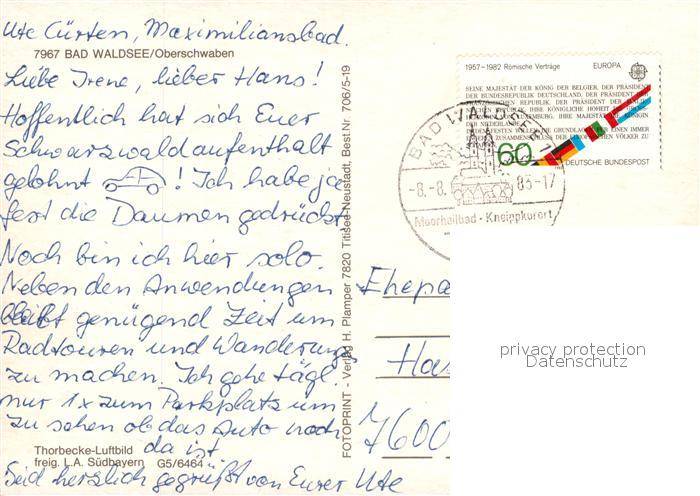 Ute Cürten, Maximiliansbad.
7967 BAD WALDSEE/Oberschwaben
Liebe Irene, lieber Hans!
Hoffentlich hat sich Euer
Schwarzwaldaufenthalt
gelohnt ! Ich habe ja
fest die Daumen gedrückt.
Noch bin ich hier solo.
Neben den Anwendungen
bleibt genügend Zeit um
Radtouren und Wanderung.
zu machen. Ich gehe tägl.
nur 1x zum Parkplatz um
zu sehen ob das Auto noch
da ist.
Seid herzlich gegrüßt von Eurer Ute
Thorbecke-Luftbild
freig. L.A. Südbayern G5/6464
FOTOPRINT - Verlag H. Plamper 7820 Titisee-Neustadt, Best.Nr. 706/5-19
1957-1982 Römische Verträge EUROPA
SEINE MAJESTÄT DER KÖNIG DER BELGIER, DER PRÄSIDENT
DER BUNDESREPUBLIK DEUTSCHLAND, DER PRÄSIDENT DER
FRANZÖSISCHEN REPUBLIK, DER PRÄSIDENT DER
60
DEUTSCHE BUNDESPOST
BAD WALDSEE
-8.-8. 83-17
Moorheilbad - Kneippkurort
Ehepa
Ha
7600
privacy protection
Datenschutz